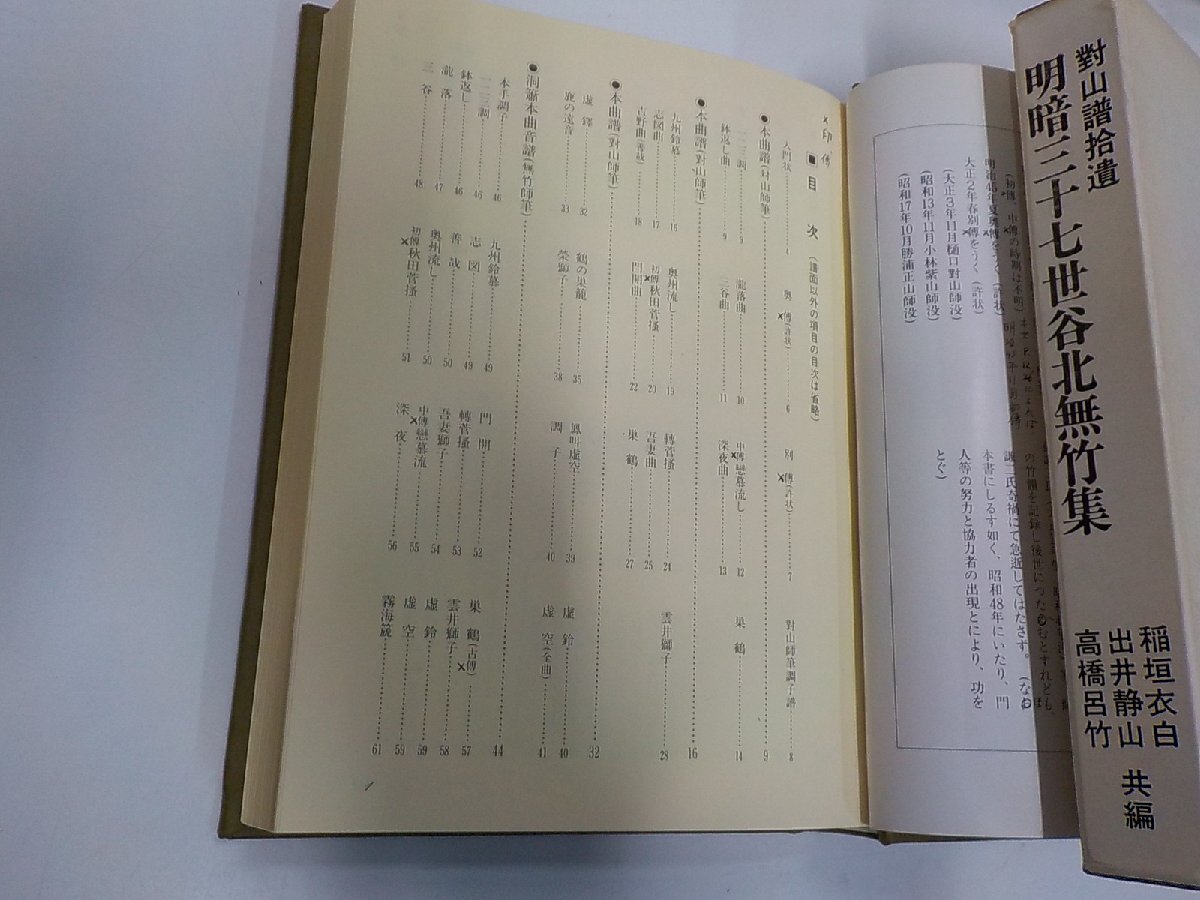 對山譜拾遺
明暗三十七世谷北無竹集
稲垣衣白
出井静山 共編
高橋呂竹
(初傳、中傳の時期は不明)
明治45年夏奥傳をうく(許状)
大正2年春別傳をうく(許状)
(大正3年11月樋口對山師没)
(昭和13年11月小林紫山師没)
(昭和17年10月勝浦正山師没)
の竹韻を記録し後世につたむとすれども、
謙二氏奇禍にて急逝してはたさず。(なお
本書にしるす如く、昭和48年にいたり、門
人等の努力と協力者の出現とにより、功を
とぐ)
×印 傳
■目 次 (譜面以外の項目の目次は省略)
入門状 4 奥 傳(許状) 6 別 傳(許状) 7 對山師筆調子譜 8
●本曲譜(對山師筆) 9
一二三調 9 瀧落曲 10 中傳戀慕流し 12 巣 鶴 14
鉢返し曲 9 三谷曲 11 深夜曲 13
●本曲譜(對山師筆) 16
九州鈴慕 16 奥州流し 19 轉菅掻 24 雲井獅子 28
志図曲 17 初傳秋田菅掻 20 吾妻曲 25
吉野曲(善哉) 18 門開曲 22 巣 鶴 27
●本曲譜(對山師筆) 32
虚鐸 32 鶴の巣籠 35 鳳叫虚空 39 虚鈴 40
鹿の遠音 33 榮獅子 38 調 子 40 虚 空(全曲) 41
●洞簫本曲音譜(無竹師筆) 44
本手調子 46 九州鈴慕 49 門 開 52 巣 鶴(古傳) 57
一二三調 46 志 図 49 轉菅掻 53 雲井獅子 58
鉢返し 46 善 哉 50 吾妻獅子 54 虚 鈴 59
瀧 落 47 奥州流し 50 中傳戀慕流 55 虚 空 59
三 谷 48 初傳秋田菅掻 51 深 夜 56 霧海箎 61